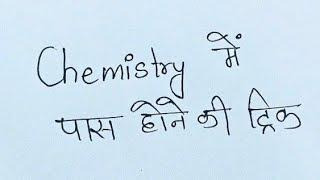 Chemistry में
पास होने की ट्रिक